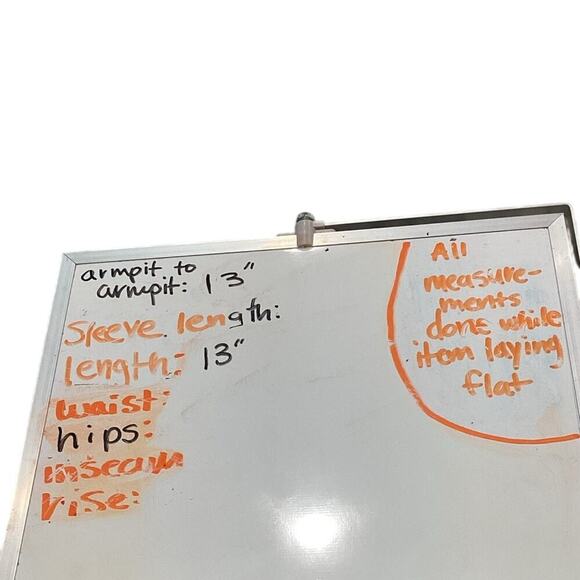 armpit to
armpit: 13"
Sleeve length:
length: 13"
waist:
hips:
inseam
rise:
All
measure-
ments
done while
item laying
flat